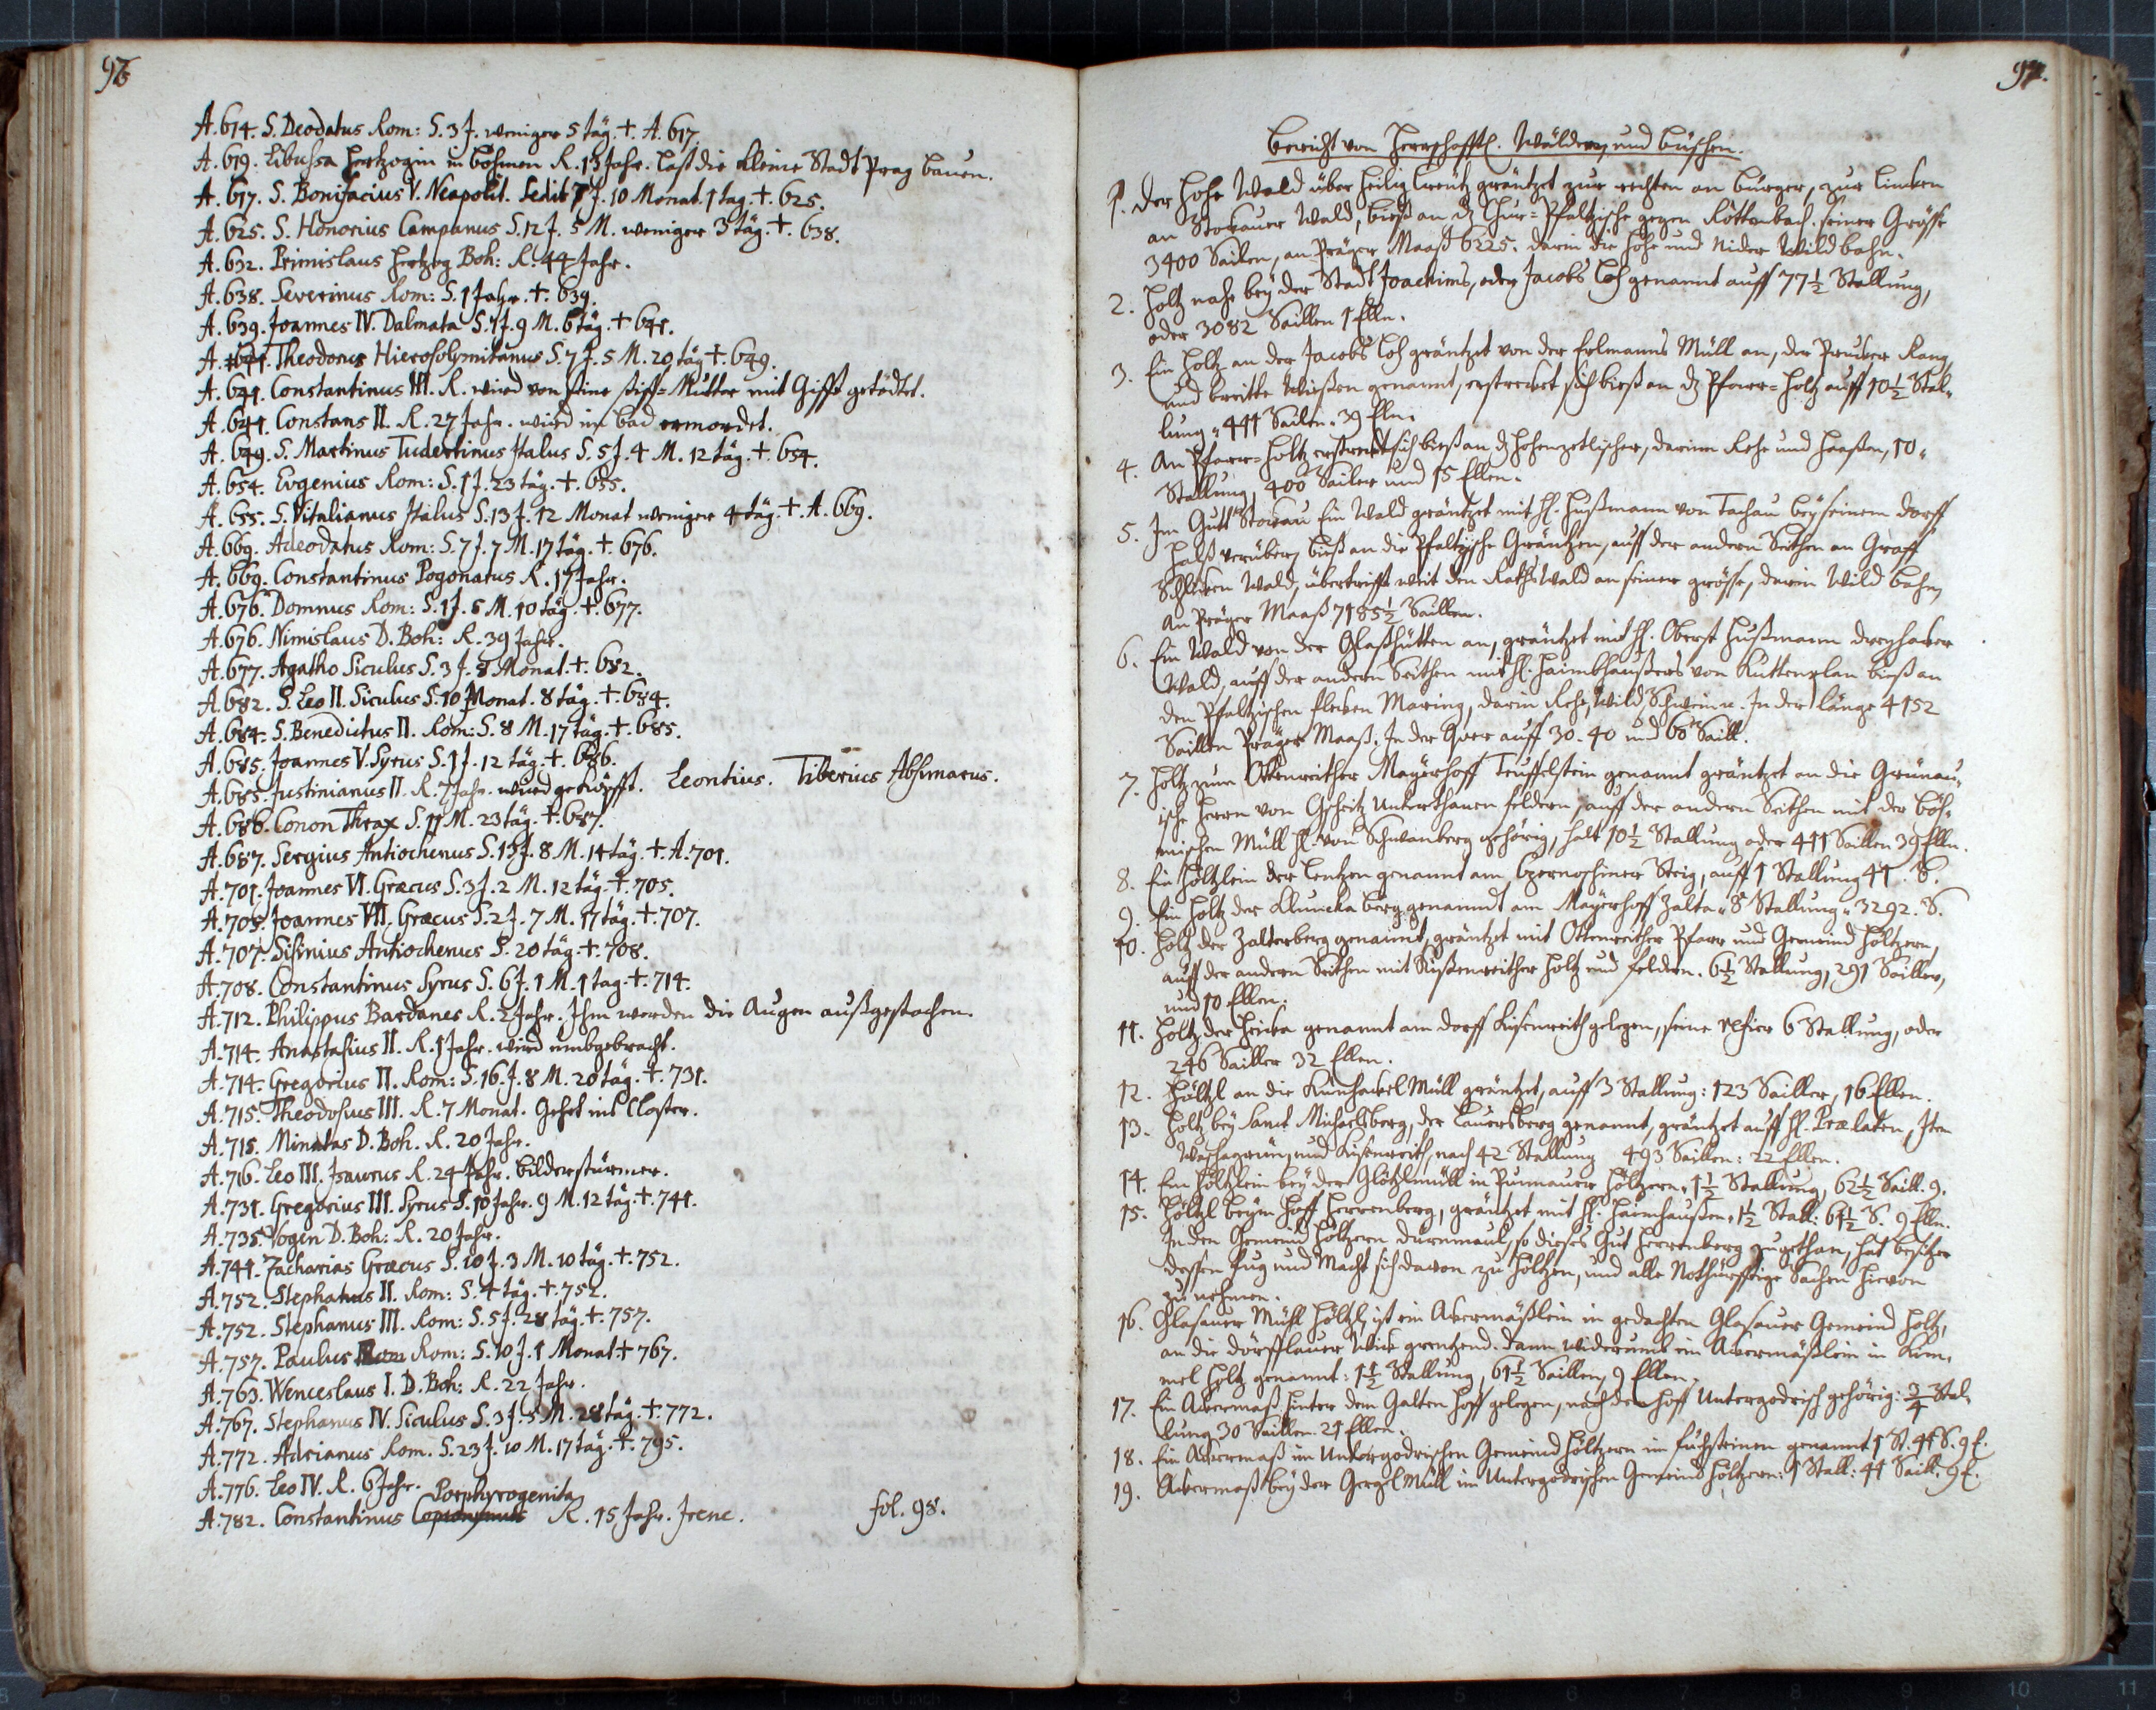 96
A. 614. S. Deodatus Rom: S. 3 J. weniger 5 täg. †. A. 617.
A. 619. Libussa Hertzogin in Böhmen R. 13 Jahr. last die Kleine Stadt Prag bauen.
A. 617. S. Bonifacius V. Neapolit. Sedit 7 J. 10 Monat. 1 tag. †. 625.
A. 625. S. Honorius Campanus S. 12 J. 5 M. weniger 3 täg. †. 638.
A. 632. Primislaus Hertzog Boh: R. 44 Jahr.
A. 638. Severinus Rom: S. 1 Jahr. †. 639.
A. 639. Joannes IV. Dalmata S. 1 J. 9 M. 6 täg. † 641.
A. 641. Theodorus Hierosolymitanus S. 7 J. 5 M. 20 täg †. 649.
A. 641. Constantinus III. R. wird von seine stiff-Mutter mit Gifft getödtet.
A. 641. Constans II. R. 27 Jahr. wird im bad ermordet.
A. 649. S. Martinus Tudertinus Italus S. 5 J. 4 M. 12 täg. †. 654.
A. 654. Eugenius Rom: S. 1 J. 23 täg. †. 655.
A. 655. S. Vitalianus Italus S. 13 J. 12 Monat weniger 4 täg. †. A. 669.
A. 669. Adeodatus Rom: S. 7 J. 7 M. 17 täg. †. 676.
A. 669. Constantinus Pogonatus R. 17 Jahr.
A. 676. Domnus Rom: S. 1 J. 5 M. 10 täg. †. 677.
A. 676. Nimislaus D. Boh: R. 39 Jahr.
A. 677. Agatho Siculus S. 3 J. 8 Monat. †. 682.
A. 682. S. Leo II. Siculus S. 10 Monat. 8 täg. †. 684.
A. 684. S. Benedictus II. Rom: S. 8 M. 17 täg. †. 685.
A. 685. Joannes V. Syrus S. 1 J. 12 täg. †. 686.
A. 685. Justinianus II. R. 7 Jahr. wird geköpfft. Leontius. Tiberius Absimarus.
A. 686. Conon Thrax S. 11 M. 23 täg. †. 687.
A. 687. Sergius Antiochenus S. 13 J. 8 M. 14 täg. †. A. 701.
A. 701. Joannes VI. Græcus S. 3 J. 2 M. 12 täg. †. 705.
A. 705. Joannes VII. Græcus S. 2 J. 7 M. 17 täg. †. 707.
A. 707. Sisinius Antiochenus S. 20 täg. †. 708.
A. 708. Constantinus Syrus S. 6 J. 1 M. 1 tag. †. 714.
A. 712. Philippus Bardanes R. 2 Jahr. Ihm werden die Augen außgestochen.
A. 714. Anastasius II. R. 1 Jahr. wird umbgebracht.
A. 714. Gregorius II. Rom: S. 16. J. 8 M. 20 täg. †. 731.
A. 715. Theodosius III. R. 7 Monat. Gehet ins Closter.
A. 715. Minatas D. Boh. R. 20 Jahr.
A. 716. Leo III. Isaurus R. 24 Jahr. bilderstürmer.
A. 731. Gregorius III. Syrus S. 10 Jahr. 9 M. 12 täg. †. 741.
A. 735. Vogen D. Boh: R. 20 Jahr.
A. 741. Zacharias Græcus S. 10 J. 3 M. 10 täg. †. 752.
A. 752. Stephanus II. Rom: S. 4 täg. †. 752.
A. 752. Stephanus III. Rom: S. 5 J. 28 täg. †. 757.
A. 757. Paulus Rom: S. 10 J. 1 Monat † 767.
A. 763. Wenceslaus I. D. Boh: R. 22 Jahr.
A. 767. Stephanus IV. Siculus S. 3 J. 5 M. 28 täg. †. 772.
A. 772. Adrianus Rom. S. 23 J. 10 M. 17 täg. †. 795.
A. 776. Leo IV. R. 6 Jahr.
Porphyrogenita
A. 782. Constantinus Copronymus R. 15 Jahr. Irene. fol. 98.
97.
Bericht von Herrschafftl. Wäldern und büschen.
1. Der hohe Wald über Heilig Creütz gräntzet zur rechten an bürger, zur lincken
an Stockauer Wald, bieß an dz Chur-Pfältzische gegen Rottenbach. seiner Grösse
3400 Sailen, an Präger Maaß 6225. darin die hohe und nider Wildbahn.
2. Holtz nahe bey der Stadt Joachims, oder Jacobs Loh genannt auff 77 1/2 Stallung,
oder 3082 Saillen 1 Elln.
3. Ein Holtz an der Jacobs Loh gräntzet von der Erlmanns Müll an, der Prucker Rang,
und breitte Wießen genannt, erstrecket sich bieß an dz Pfarr-Holtz auff 10 1/2 Stal-
lung, 411 Sailn. 39 Elln.
4. An Pfarr-Holtz erstreckt sich bieß an dz hohenzetlischer, darinn Rehe und Haaßen, 10.
Stallung, 400 Sailer und 15 Ellen.
5. Im Gutt Stockau Ein Wald gräntzet mit H. Hußmann von Tachau bey seinem dorff
Halß vorüber, bieß an die Pfältzische Gräntzen, auff der andern Seithen an Graff
Schlicken Wald, übertrifft weit den Rathswald an seiner grösse, darin Wildbahn,
An Präger Maaß 7185 1/2 Saillen.
6. Ein Wald von der Glaßhütten an, gräntzet mit H. Oberst Hußmann dreyhacken
Wald, auff der andern Seithen mit H. Haimbhaußers von Kuttenplan bieß an
den Pfältzischen flecken Maring, darin Rehe, Wild Schwein ꝛc. In der länge 4152
Saillen Präger Maaß. In der Quer auff 30. 40 und 60 Saill.
7. Holtz zum Ottenreither Mayerhoff Teuffelstein genannt gräntzet an die Grünau-
ische Herrn von Gscheitz Unterthanen feldern, auff der andern Seithen mit der böh-
mischen Müll H. von Schwanberg gehörig, halt 10 1/2 Stallung oder 411 Saillen 39 Elln.
8. Ein Höltzlein der Lentzen genannt am Czernoschiner Steig, auff 1 Stallung 41. S.
9. Ein Holtz der Klumcka berg genanndt am Mayerhoff Zalta, 8 Stallung, 3292. S.
10. Holtz der Zalterberg genannt, gräntzet mit Ottenreither Pfarr und Gemeind Höltzern,
auff der andern Seithen mit Kießenreither Holtz und feldern. 6 1/2 Stallung, 291 Sailler,
und 10 Ellen.
11. Holtz der Hricka genannt am dorff Kiesenreith gelegen, seine refier 6 Stallung, oder
246 Sailler 32 Ellen.
12. Höltzl an die Kunhackel Müll gräntzet, auff 3 Stallung: 123 Sailler, 16 Ellen.
13. Holtz bey Sanct Michaelsberg, der Lauersberg genannt, gräntzet auff H. Prælaten, Item
Waschagrün, und Kiesenreith, nach 42 Stallung 493 Saillen: 22 Ellen.
14. Ein Höltzlein bey der Glötzlmüll in Punnauer Höltzern, 1 1/2 Stallung, 62 1/2 Saill. 9.
15. Höltzl beym Hoff Herrenberg, gräntzet mit H. Haimhaußen, 1 1/2 Stall: 61 1/2 S. 9 Elln.
In den Gemeind Höltzern Durnmaul, so dieses Gut Herrenberg zugethan, hat besitzer
dessen fug und Macht sich davon zu höltzen, und alle Nothürfftige Sachen hievon
zu nehmen.
16. Glasauer Mühl Höltzl ist ein Ackermäßlein in gedachten Glasauer Gemeind Holtz,
an die dörfflauer Wiese grentzend. dann widerumb ein Ackermäßlein in Küm-
mel Holtz genannt: 1 1/2 Stallung, 61 1/2 Saillen, 9 Ellen.
17. Ein Ackermaß hinter dem Galtenhoff gelegen, nach dem hoff Untergodrisch gehörig: 3/4 Stal-
lung 30 Saillen. 21 Ellen.
18. Ein Ackermaß im Untergodrischen Gemeind Höltzern im Fuchssteinen genannt 1 St. 41 S. 9 E.
19. Ackermaß bey der Gergl Müll im Untergodrischen Gemeind Höltzern: 1 Stall: 41 Saill. 9 E.